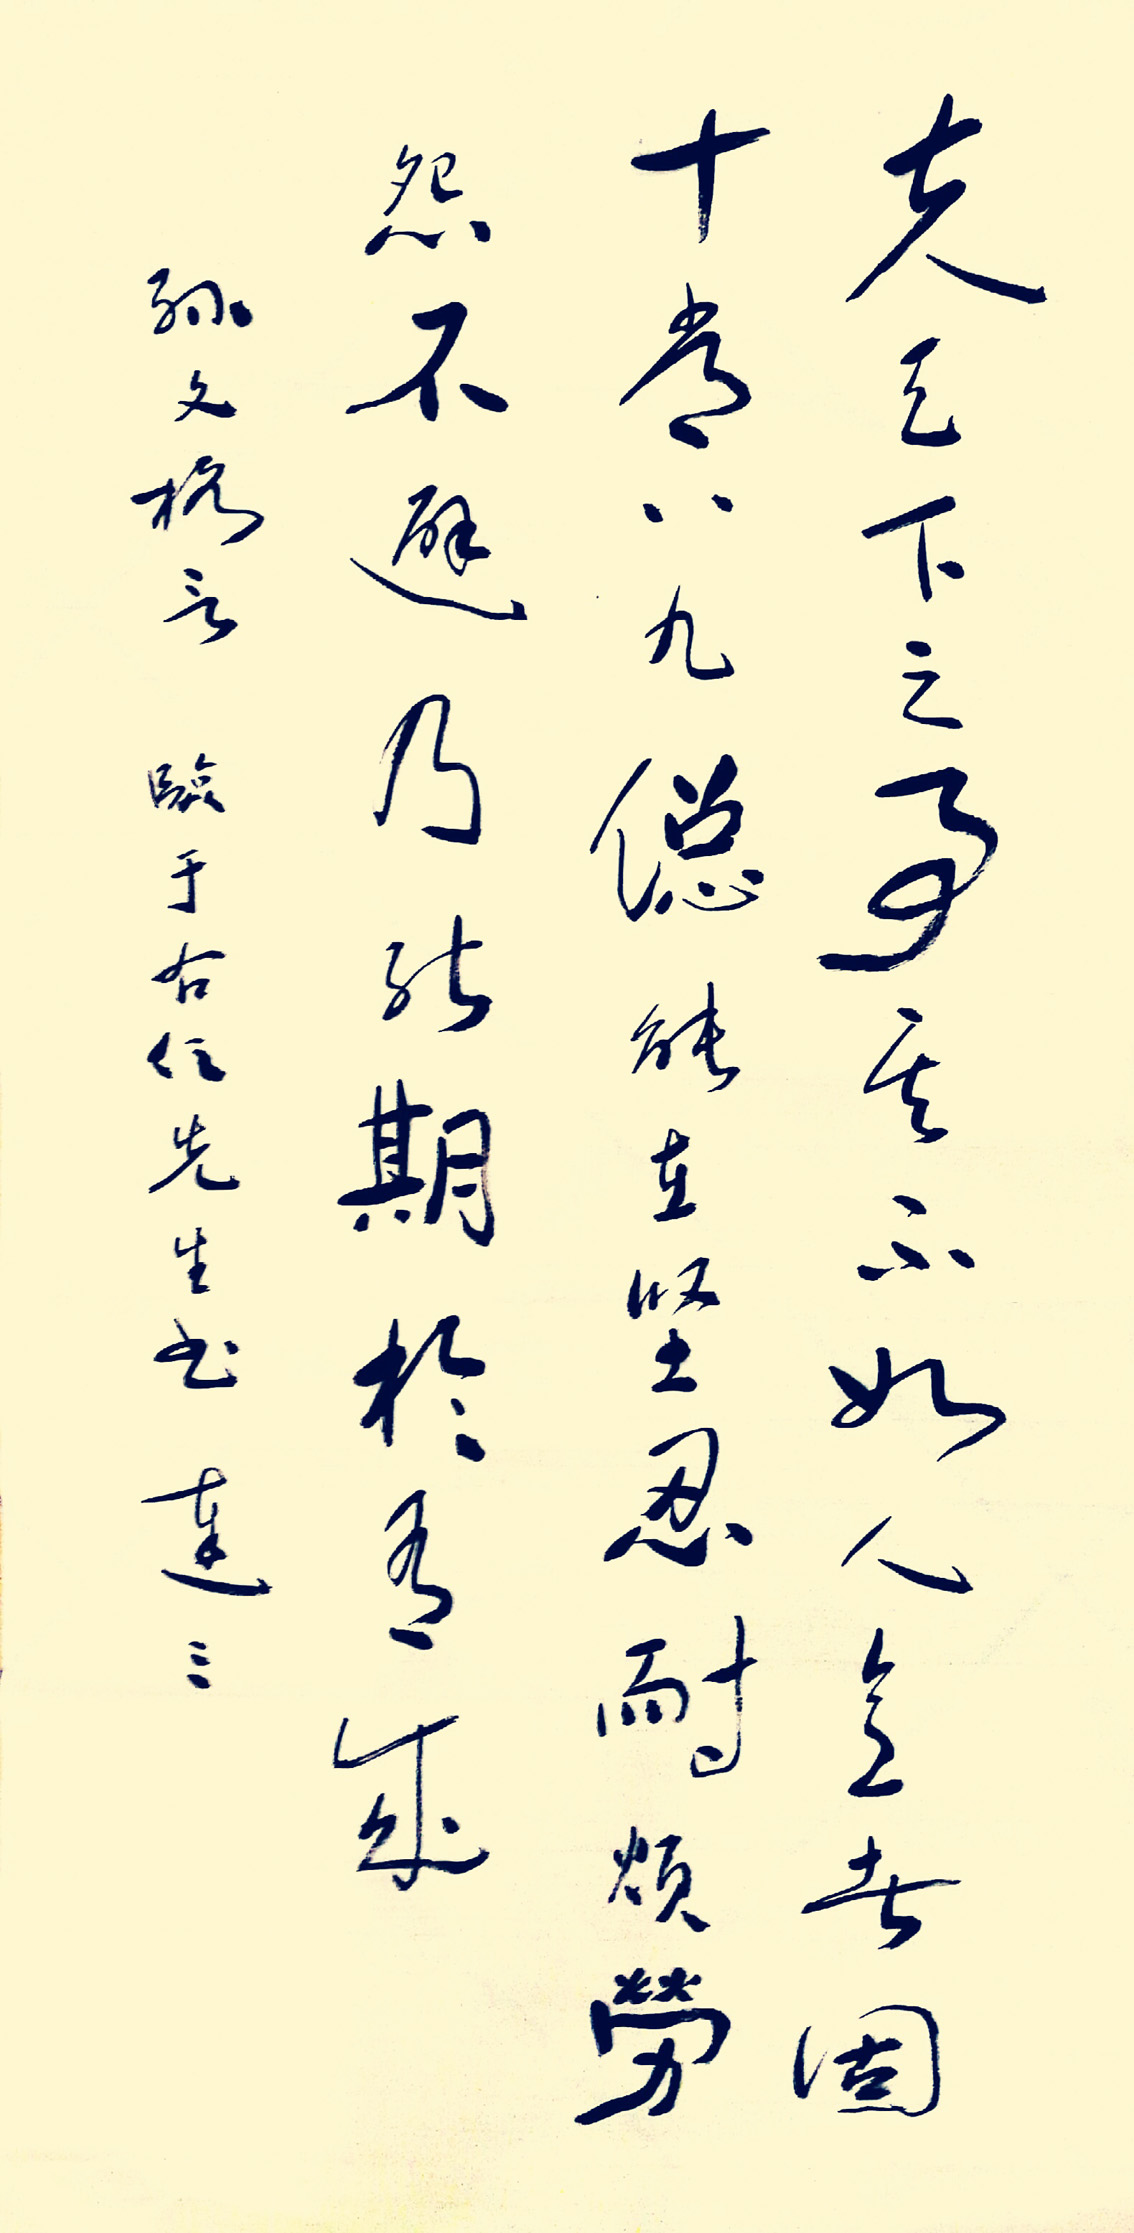 夫天下之事其不如人意者固
十常八九總能在堅忍耐煩勞
怨不避乃能期於有成
孫文格言 臨于右任先生書 達三